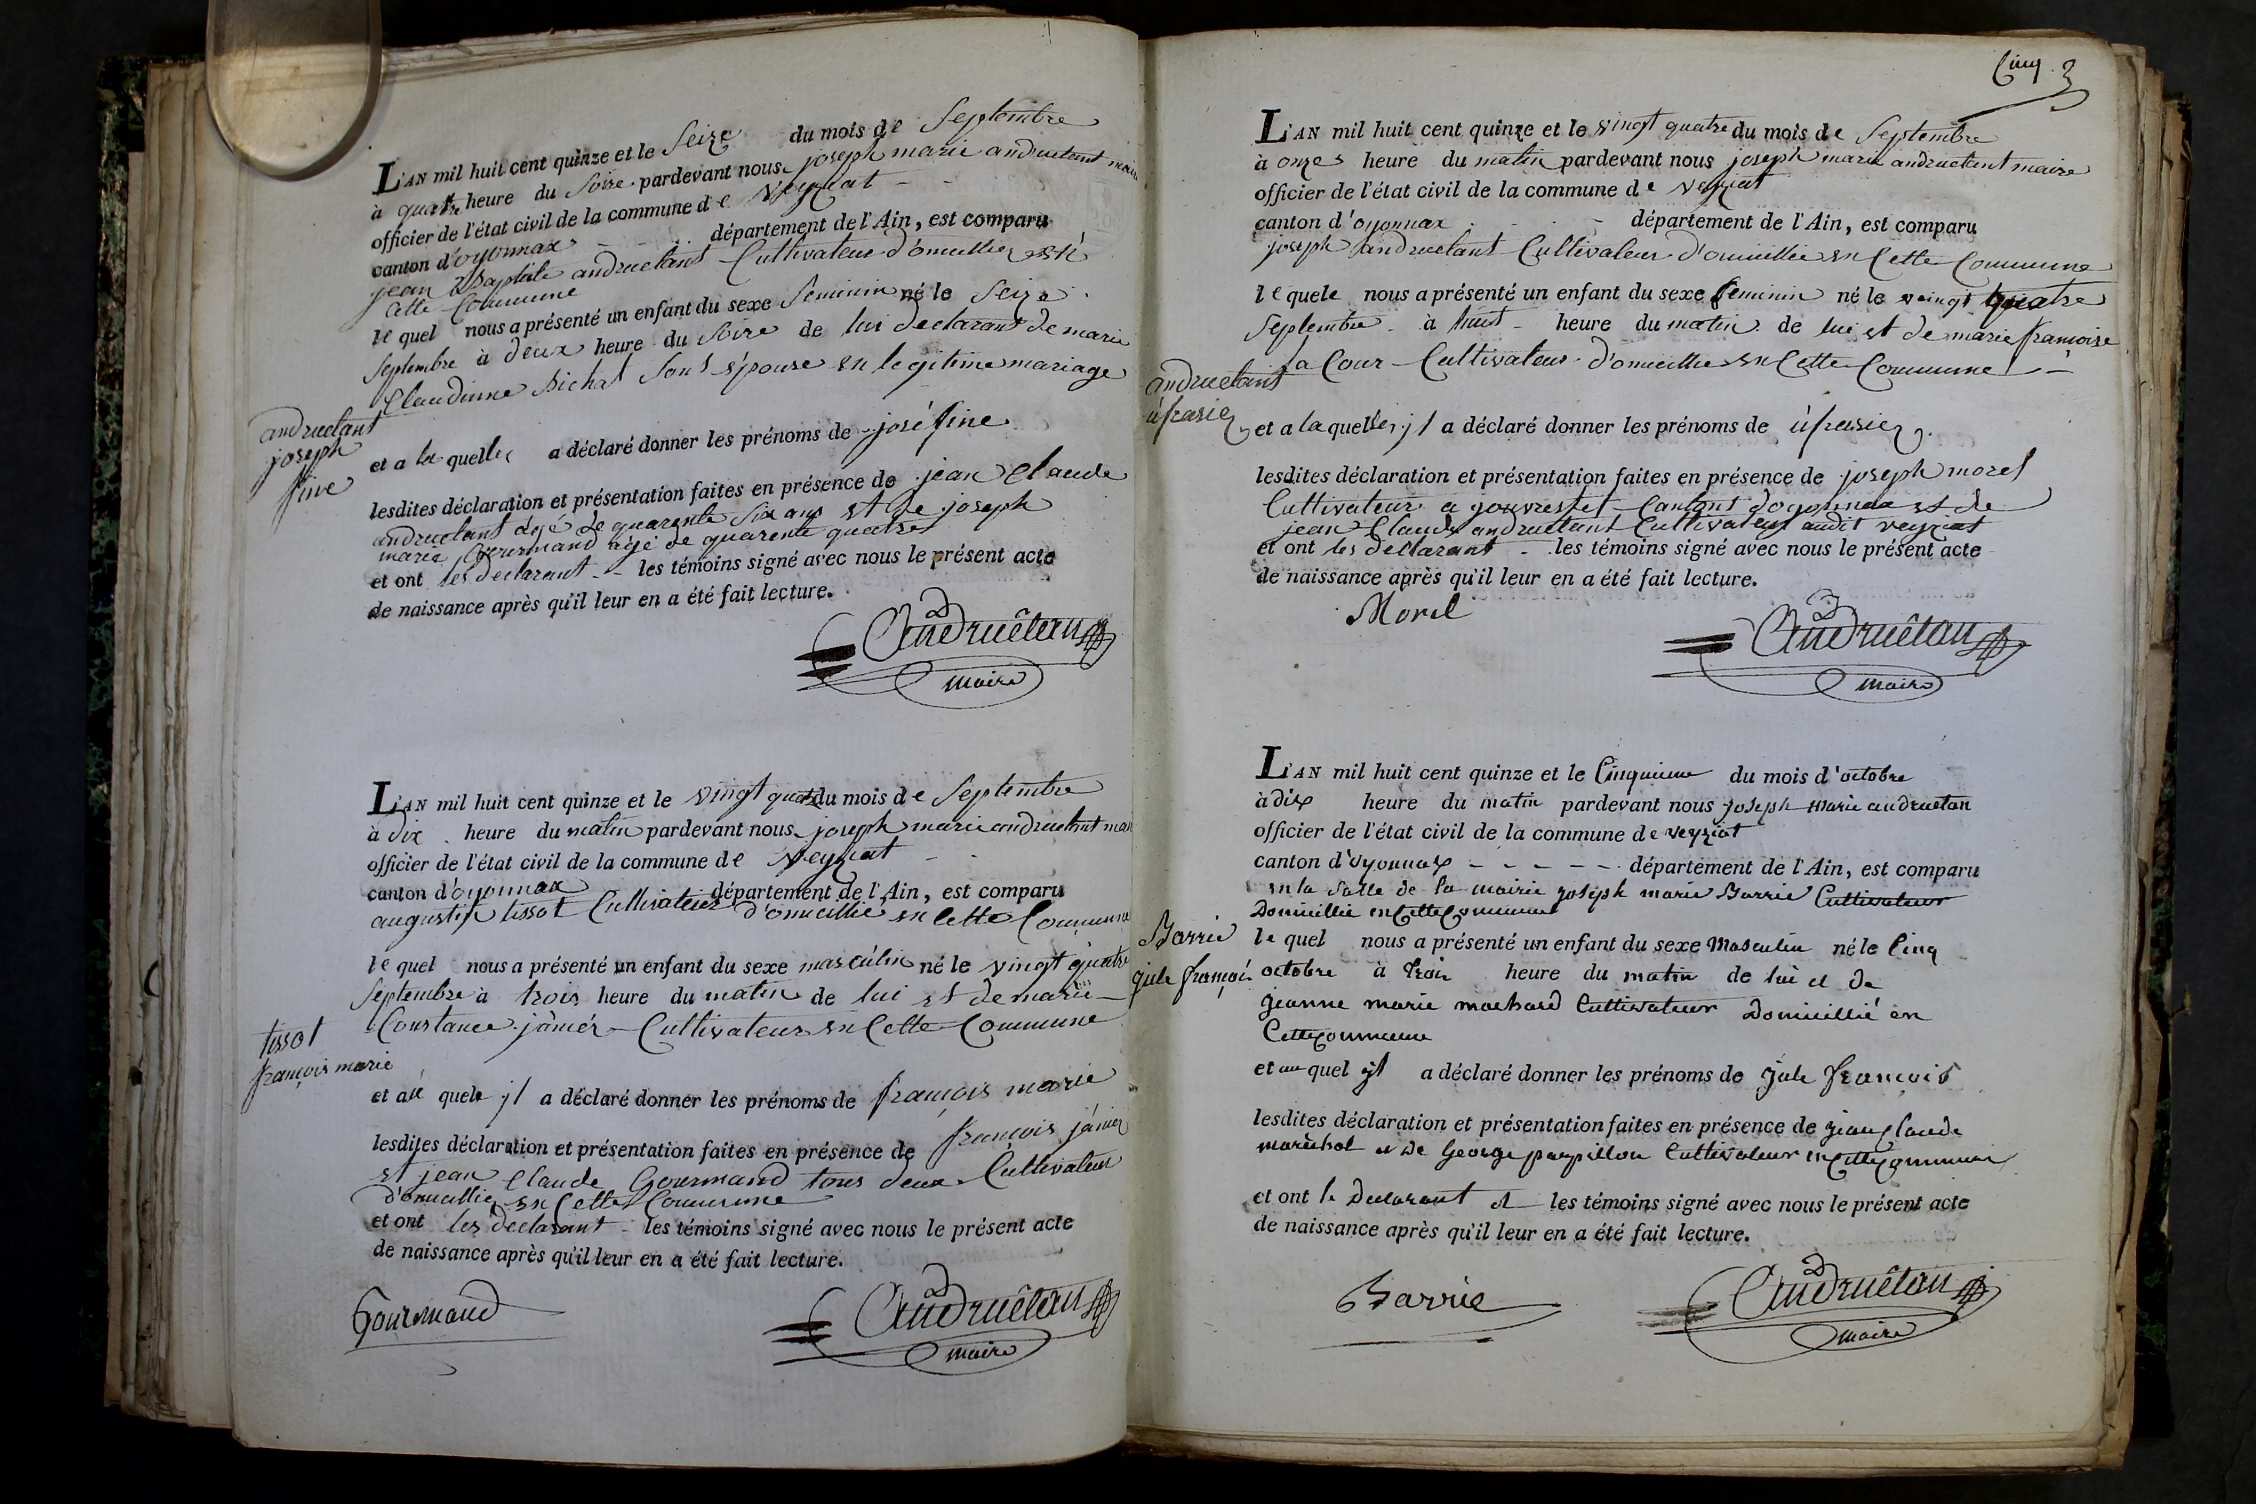 L'AN mil huit cent quinze et le Seize du mois de Septembre
à quatre heure du Soire pardevant nous joseph marie andruetant maire
officier de l'état civil de la commune de veyziat
canton d'oyonnax département de l'Ain, est comparu
jean Baptiste andruetant Cultivateur d'omicillier en
Cette Commune
le quel nous a présenté un enfant du sexe feminin né le Seize
Septembre à deux heure du Soire de lui declarant de marie
Claudinne Bichat Sont épouse en legitime mariage
andruetant
joseph
fine
et a la quelle a déclaré donner les prénoms de joséfine
lesdites déclaration et présentation faites en présence de jean Claude
andruetant agé de quarente Six ans et de joseph
marie Gourmand agé de quarente quatre
et ont les declarant les témoins signé avec nous le présent acte
de naissance après qu'il leur en a été fait lecture.
Andruêtan
maire
L'AN mil huit cent quinze et le vingt quatre du mois de Septembre
à dix heure du matin pardevant nous joseph marie andruetant maire
officier de l'état civil de la commune de veyziat
canton d'oyonnax département de l'Ain, est comparu
augustin tissot Cultivateur d'omicillié en Cette Commune
le quel nous a présenté un enfant du sexe masculin né le vingt quatre
Septembre à trois heure du matin de lui et de marie
Constance jamér Cultivateur en Cette Commune
tissot
françois marie
et au quele jl a déclaré donner les prénoms de françois marie
lesdites déclaration et présentation faites en présence de françois jámier
et jean Claude Gourmand tous deux Cultivateur
d'omicillier en Cette Commune
et ont les declarant les témoins signé avec nous le présent acte
de naissance après qu'il leur en a été fait lecture.
Gourmand
Andruêtan
maire
Cinq
3
L'AN mil huit cent quinze et le vingt quatre du mois de Septembre
à onze heure du matin pardevant nous joseph marie andruetant maire
officier de l'état civil de la commune de veyziat
canton d'oyonnax département de l'Ain, est comparu
joseph andruetant Cultivateur d'omicillié en Cette Commune
le quele nous a présenté un enfant du sexe feminin né le veingt quatre
Septembre à huit heure du matin de lui et de marie françoise
la Cour Cultivateur d'omicillie en Cette Commune
andruetant
úfrasie
et a la quelle jl a déclaré donner les prénoms de úfrasie
lesdites déclaration et présentation faites en présence de joseph morel
Cultivateur a gouvresset Cantont d'oyonnax et de
jean Claude andruetant Cultivateur audit veyziat
et ont les declarant les témoins signé avec nous le présent acte
de naissance après qu'il leur en a été fait lecture.
Morel
Andruêtan
maire
L'AN mil huit cent quinze et le Cinquieme du mois d'octobre
à dix heure du matin pardevant nous joseph marie andruetan
officier de l'état civil de la commune de veyziat
canton d'oyonnax département de l'Ain, est comparu
en la Salle de la mairie joseph marie Barrié Cultivateur
Domicillié en Cette Commune
le quel nous a présenté un enfant du sexe Masculin né le Cinq
octobre à trois heure du matin de lui et de
jeanne marie machard Cultivateur Domicillié en
Cette Commune
Barrié
jule françois
et au quel jl a déclaré donner les prénoms de jule françois
lesdites déclaration et présentation faites en présence de jean Claude
maréchal et de George papillon Cultivateur en Cette Commune
et ont le Declarant et les témoins signé avec nous le présent acte
de naissance après qu'il leur en a été fait lecture.
Barrié
Andruêtan
maire